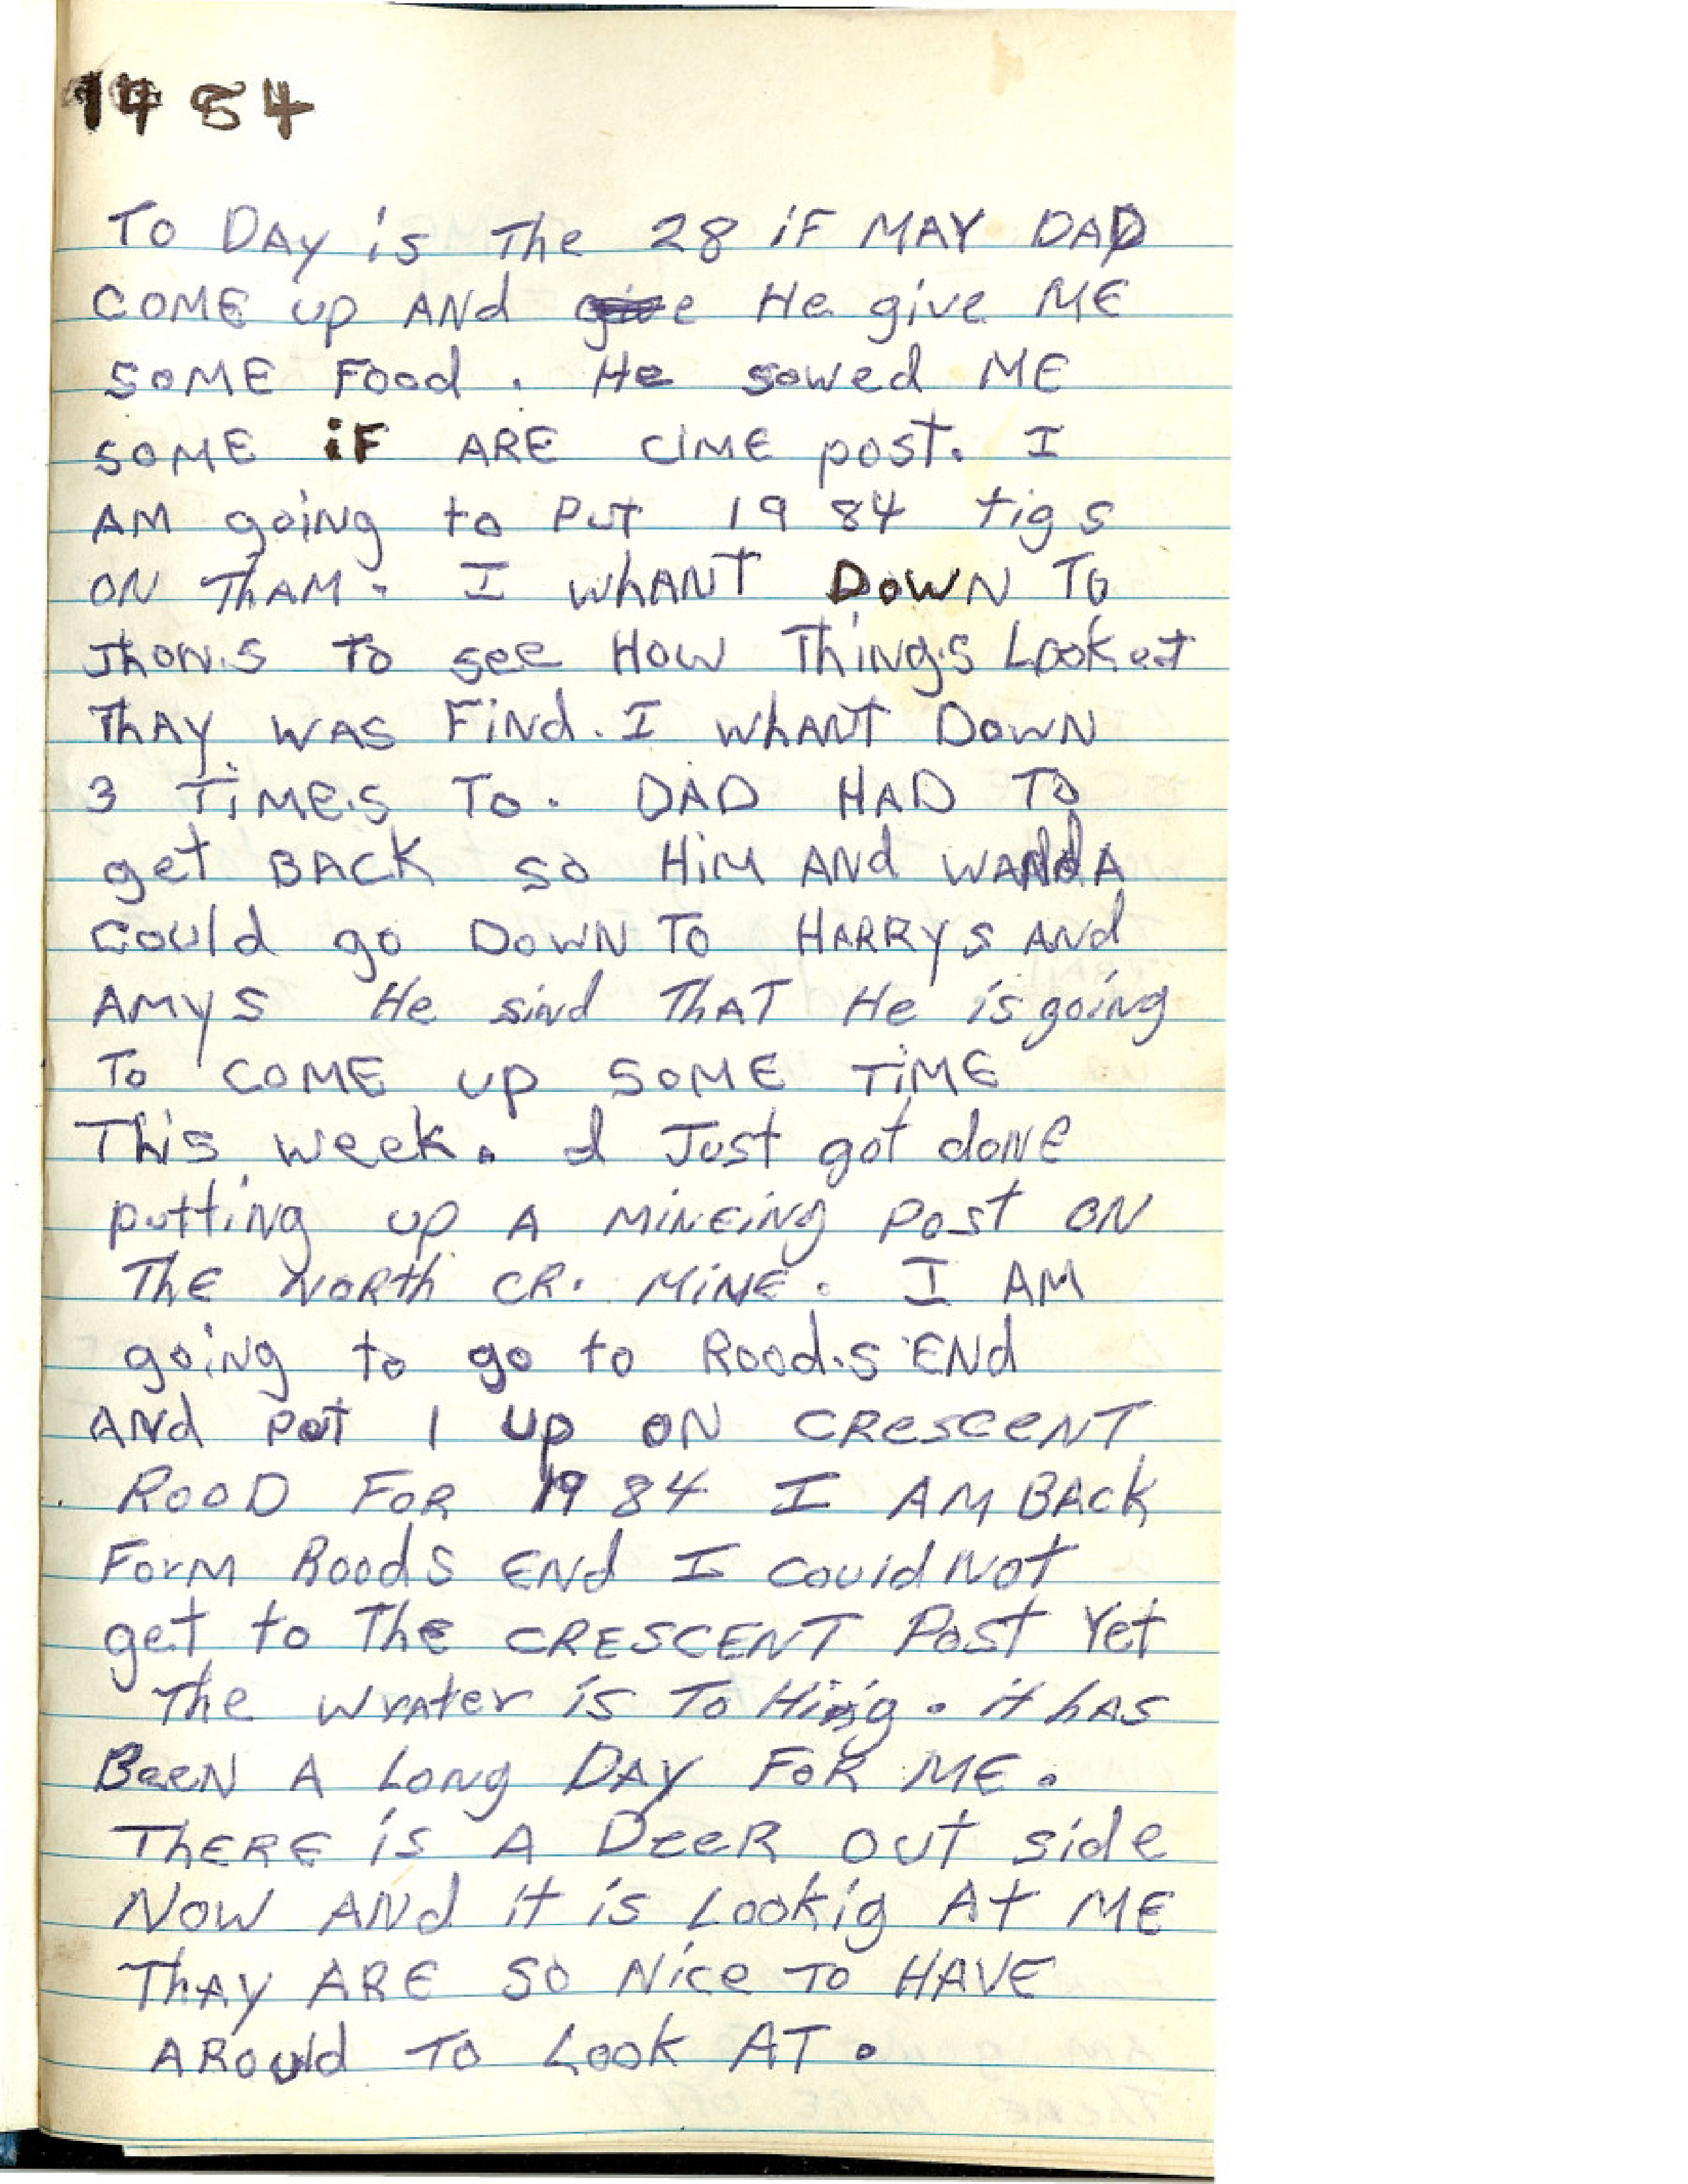 1984
To DAY is The 28 iF MAY DAD
COME up ANd give He give ME
SOME Food. He sowed ME
SOME iF ARE CIME post. I
AM going to Put 1984 tigs
ON ThAM. I whANT DOWN TO
Jhon.s To see How Thing.s Look at
ThAY WAS FiNd. I whANT DOWN
3 TiMe.s To. DAD HAD TO
get BACK so HiM ANd WANdA
Could go DOWN TO HARRYs ANd
AMYS He sind ThAT He is going
To COME up SOME TiME
This week. I Just got doNE
putting up A MiNEiNg Post ON
ThE NORth CR. MiNE. I AM
going to go to Rood.s ENd
ANd Pot 1 up ON CRESCENT
ROOD FOR 1984 I AM BACk
ForM Roods ENd I Could Not
get to The CRESCENT Post Yet
The wrater is To Hinig. it hAS
BeeN A LoNg DAY FoR ME.
ThERE is A DeeR out side
Now ANd it is Lookig At ME
ThAY ARE SO Nice TO HAVE
ARould To Look AT.